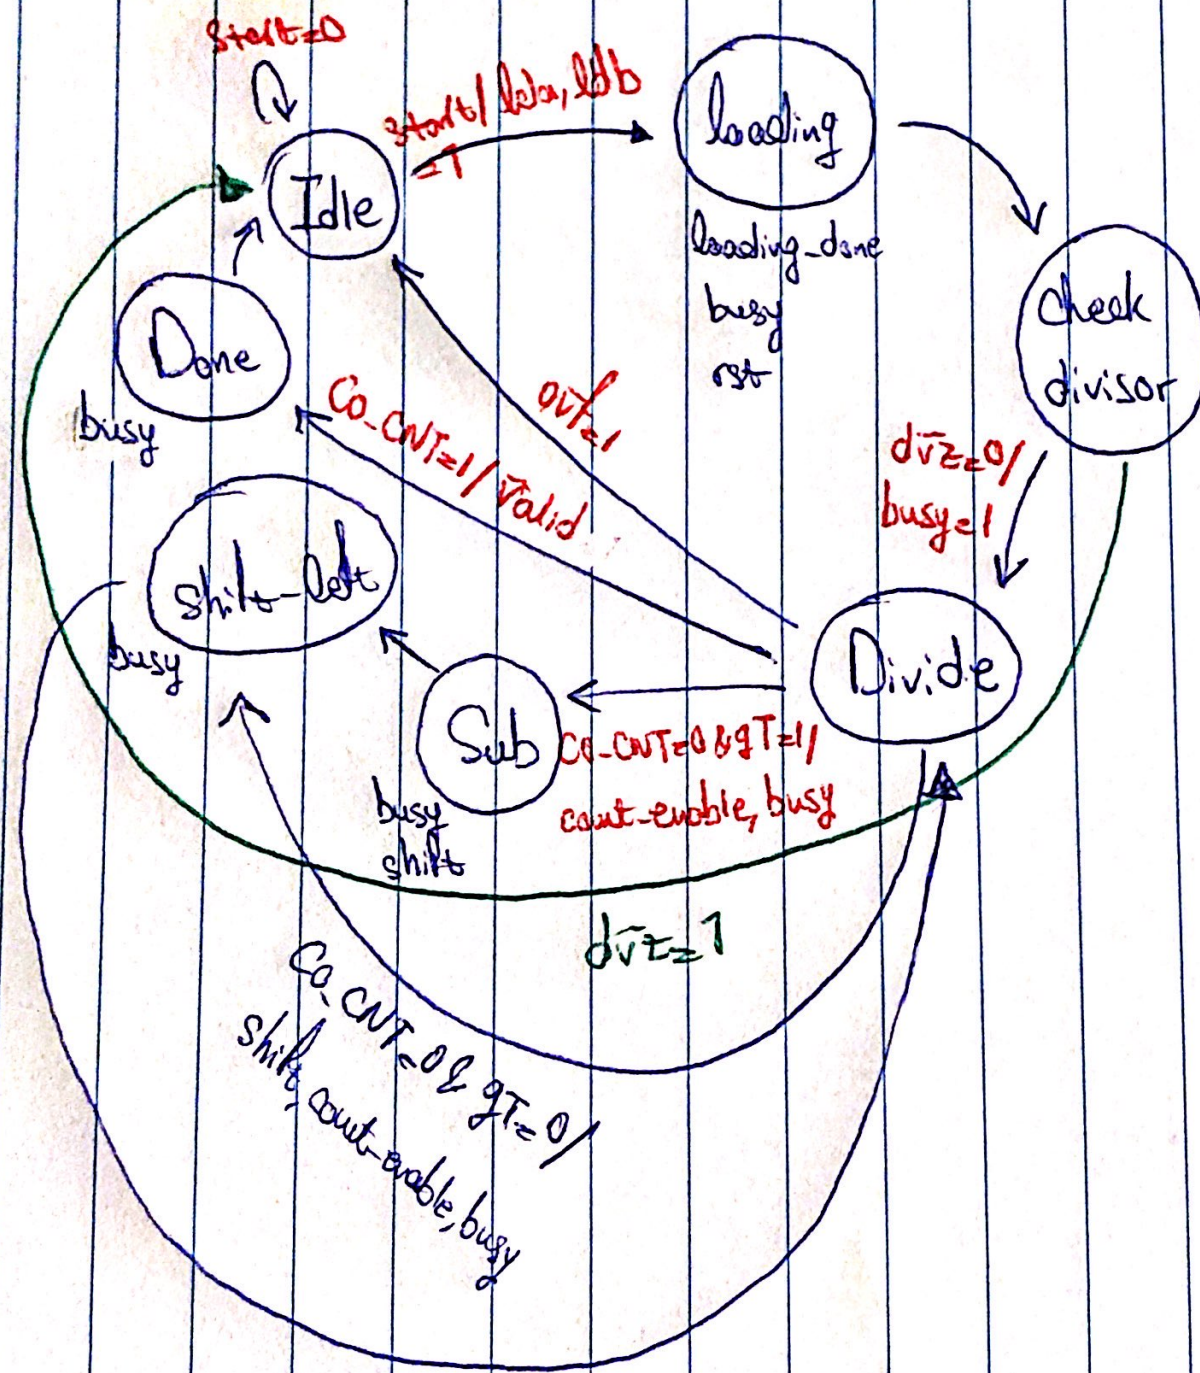 start=0
start/ lda, ldb
=1
Idle
loading
loading_done
busy
rst
check
divisor
Done
busy
Co_CNT=1/ valid
ovf=1
dvz=0/
busy=1
shift-left
busy
Divide
Sub
busy
shift
Co_CNT=0 & gT=1/
count-enable, busy
dvz=1
Co_CNT=0 & gT=0/
shift, count-enable, busy